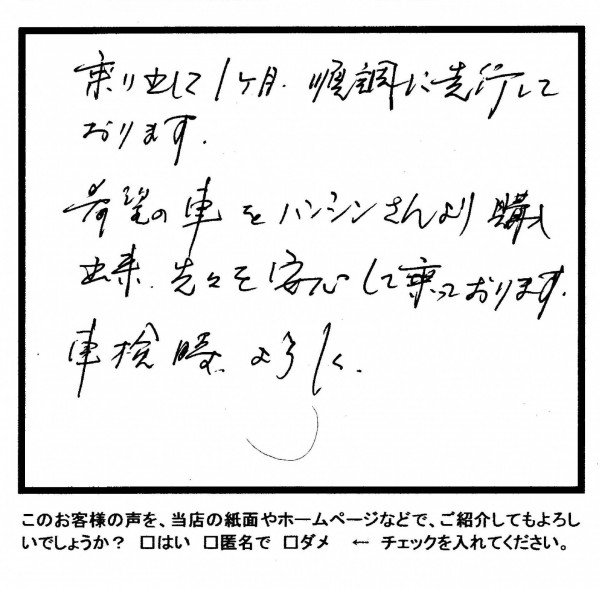 乗り出して1ヶ月.順調に走行して
おります.
希望の車をハンシンさんより購入
出来.先々を安心して乗っております.
車検時.よろしく.
このお客様の声を、当店の紙面やホームページなどで、ご紹介してもよろし
いでしょうか? □はい □匿名で □ダメ ← チェックを入れてください。